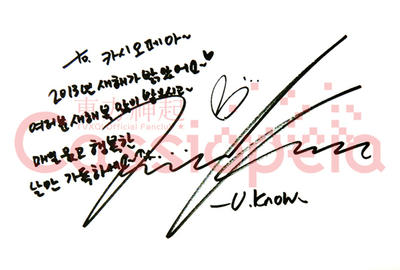 to. 카시오페아~
2013년 새해가 밝았어요~♡
여러분 새해 복 많이 받으시고~
매일 웃고 행복한
날만 가득하세요~
東方神起
TVXQ! Official Fanclub
Cassiopeia
-U.Know-